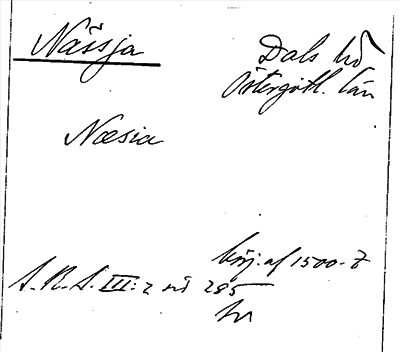 Nässja
Dals hd
Östergötl. län
Næsia
börj. af 1500-t
S.R.S. III:2 sid 285